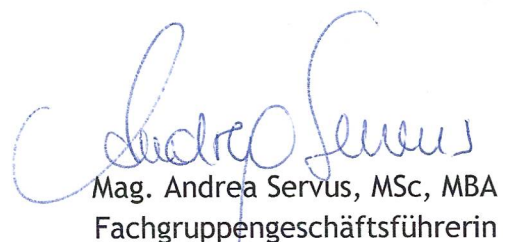 Andrea Servus
Mag. Andrea Servus, MSc, MBA
Fachgruppengeschäftsführerin